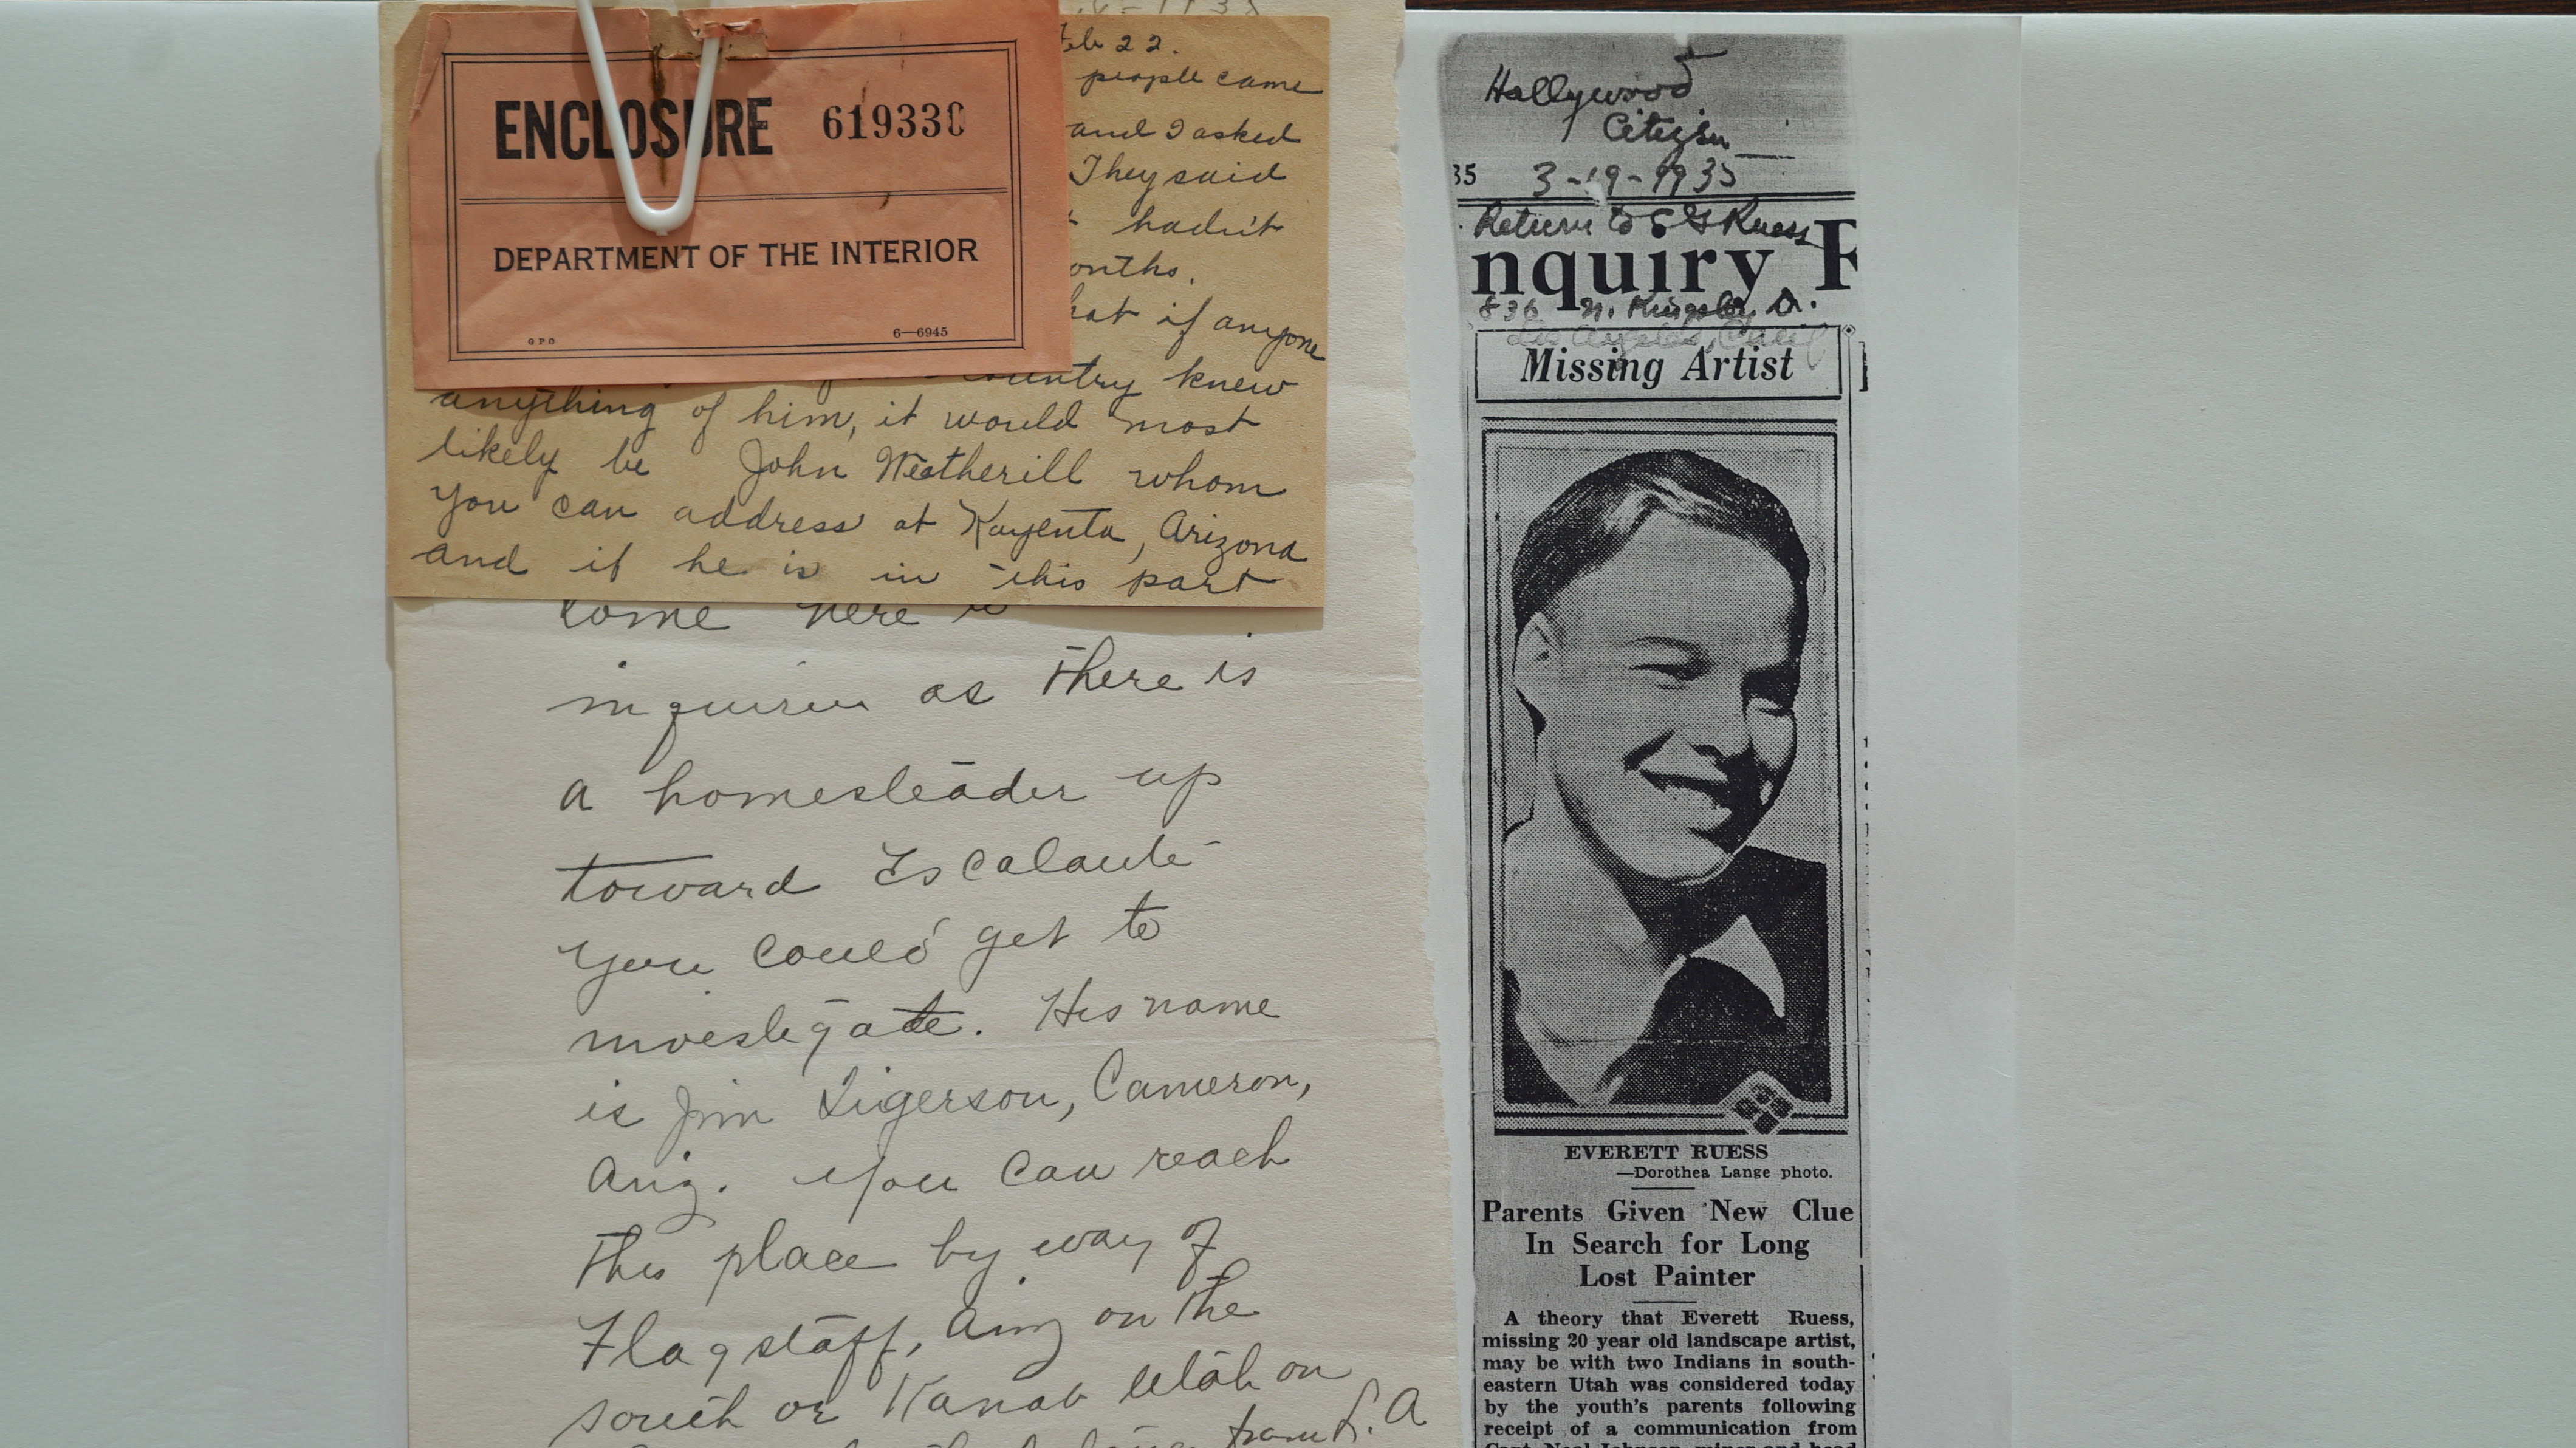 ENCLOSURE 619330
DEPARTMENT OF THE INTERIOR
GPO
6—6945
Feb 22.
people came
and I asked
They said
hadn't
onths.
hat if anyone
country knew
anything of him, it would most
likely be John Weatherill whom
you can address at Kayenta, Arizona
and if he is in this part
come here
inquiries as there is
a homesteader up
toward Escalante
you could get to
investigate. His name
is Jim Ligerson, Cameron,
Ariz. you can reach
this place by way of
Flagstaff, Ariz on the
south or Kanab Utah on
from L.A
Hollywood
Citizen
35 3-19-1935
Return to Ruess
nquiry F
836 N. Kingsley Dr.
Los Angeles, Calif
Missing Artist
EVERETT RUESS
—Dorothea Lange photo.
Parents Given New Clue
In Search for Long
Lost Painter
A theory that Everett Ruess,
missing 20 year old landscape artist,
may be with two Indians in south-
eastern Utah was considered today
by the youth's parents following
receipt of a communication from
Capt. Neal Johnson, miner and head